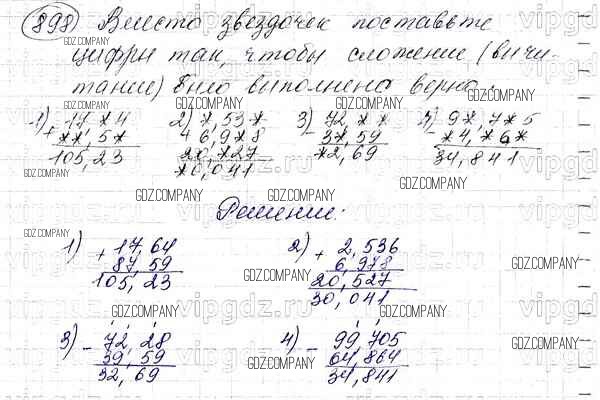 898) Вместо звездочек поставьте
цифры так, чтобы сложение (вычи-
тание) было выполнено верно.
1) + 17,*4
**,5*
105,23
2) *,53*
+ 6,9*8
20,*27
*0,041
3) - 72,**
3*,59
*2,69
4) - 9*,7*5
*4,*6*
34,841
Решение:
1) + 17,64
87,59
105,23
2) + 2,536
6,978
20,527
30,041
3) - 72,28
39,59
32,69
4) - 99,705
64,864
34,841
GDZ.COMPANY
vipgdz.ru